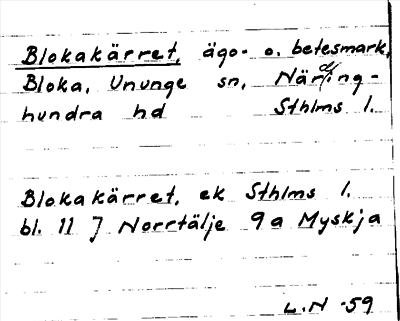 Blokakärret, ägo- o. betesmark,
Bloka, Ununge sn, Närding-
hundra hd Sthlms l.
Blokakärret, ek Sthlms l.
bl. 11 J Norrtälje 9a Myskja
L.N -59